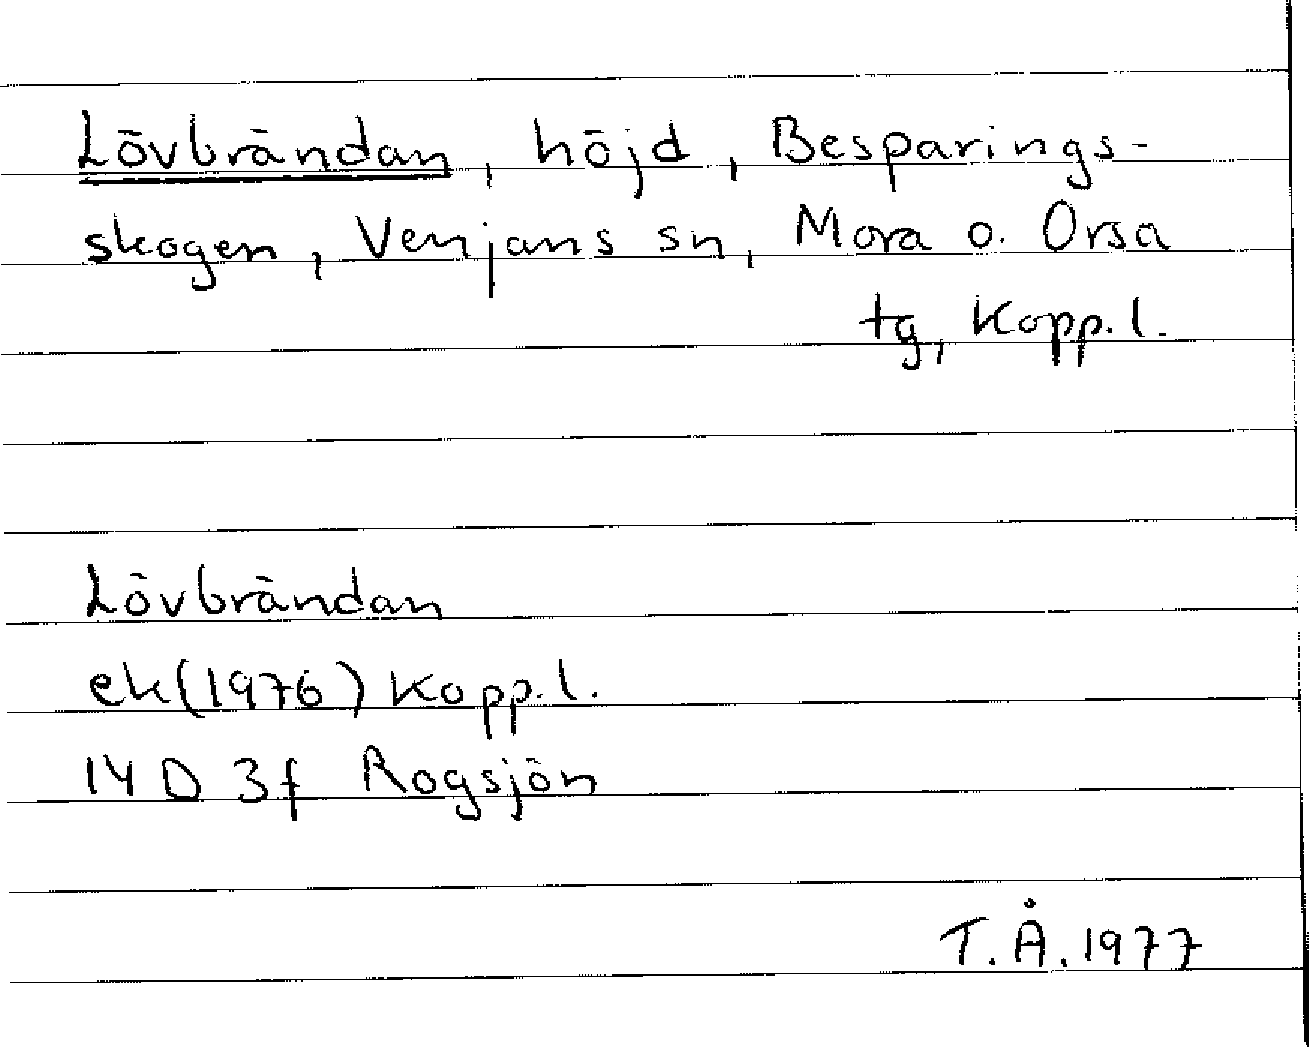 Lövbrändan, höjd, Besparings-
skogen, Venjans sn, Mora o. Orsa
tg, Kopp.l.
Lövbrändan
ek(1976) Kopp.l.
14 D 3f Rogsjön
T.Å.1977